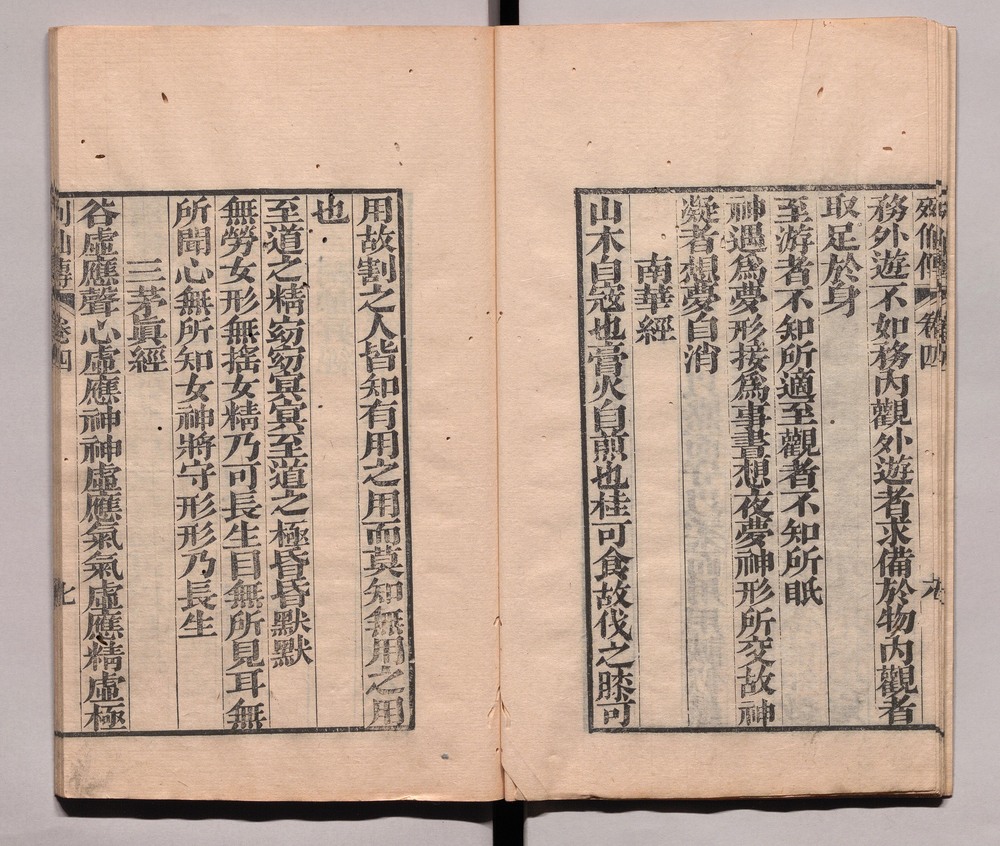 列仙傳 卷四
務外遊不如務内觀外遊者求備於物内觀者
取足於身
至游者不知所適至觀者不知所眂
神遇爲夢形接爲事晝想夜夢神形所交故神
凝者想夢自消
南華經
山木自寇也膏火自煎也桂可食故伐之膝可
用故割之人皆知有用之用而莫知無用之用
也
至道之精窈窈冥冥至道之極昏昏默默
無勞女形無搖女精乃可長生目無所見耳無
所聞心無所知女神將守形形乃長生
三茅眞經
谷虛應聲心虛應神神虛應氣氣虛應精虛極
列仙傳 卷四